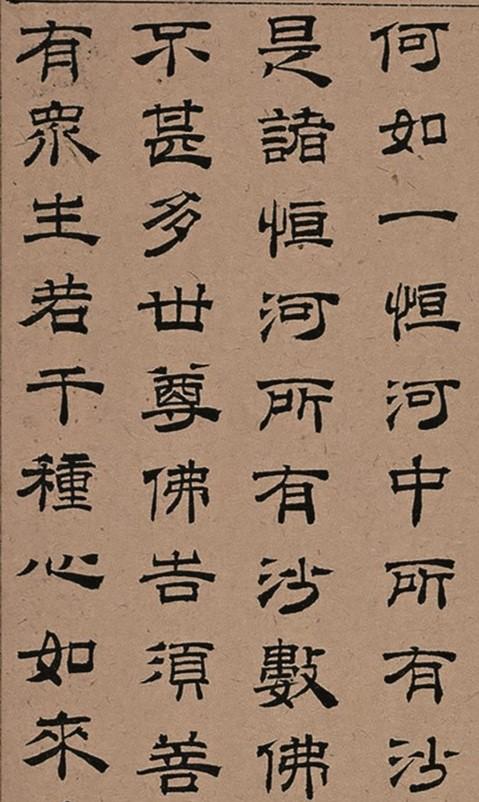 何如一恒河中所有沙
是諸恒河所有沙數佛
不甚多世尊佛告須菩
有眾生若干種心如來